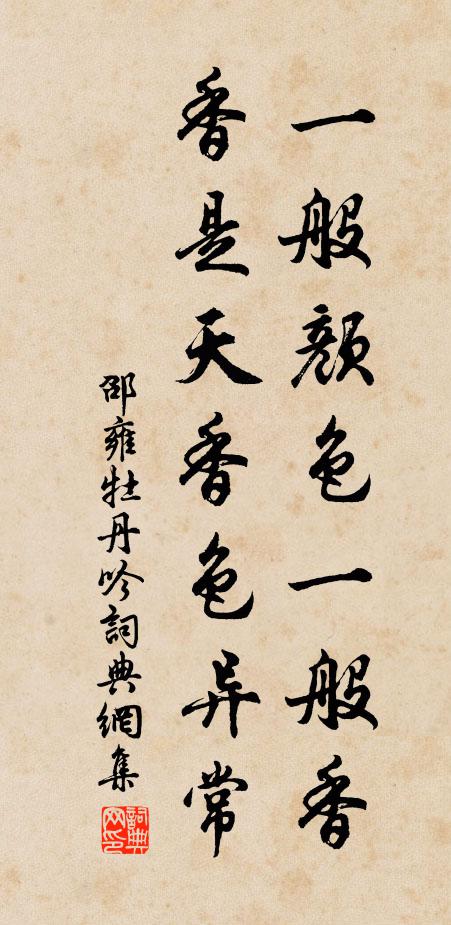 一般顏色一般香
香是天香色异常
邵雍牡丹吟詞典網集
詞典网印